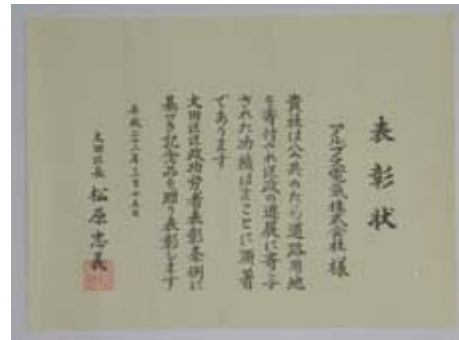 表彰状
アルプス電気株式会社様
貴社は公共のため道路用地
を寄付され区政の進展に寄与
された功績はまことに顕著
であります
大田区区政功労者表彰条例に
基づき記念品を贈り表彰します
平成二十三年三月十五日
大田区長 松原忠義